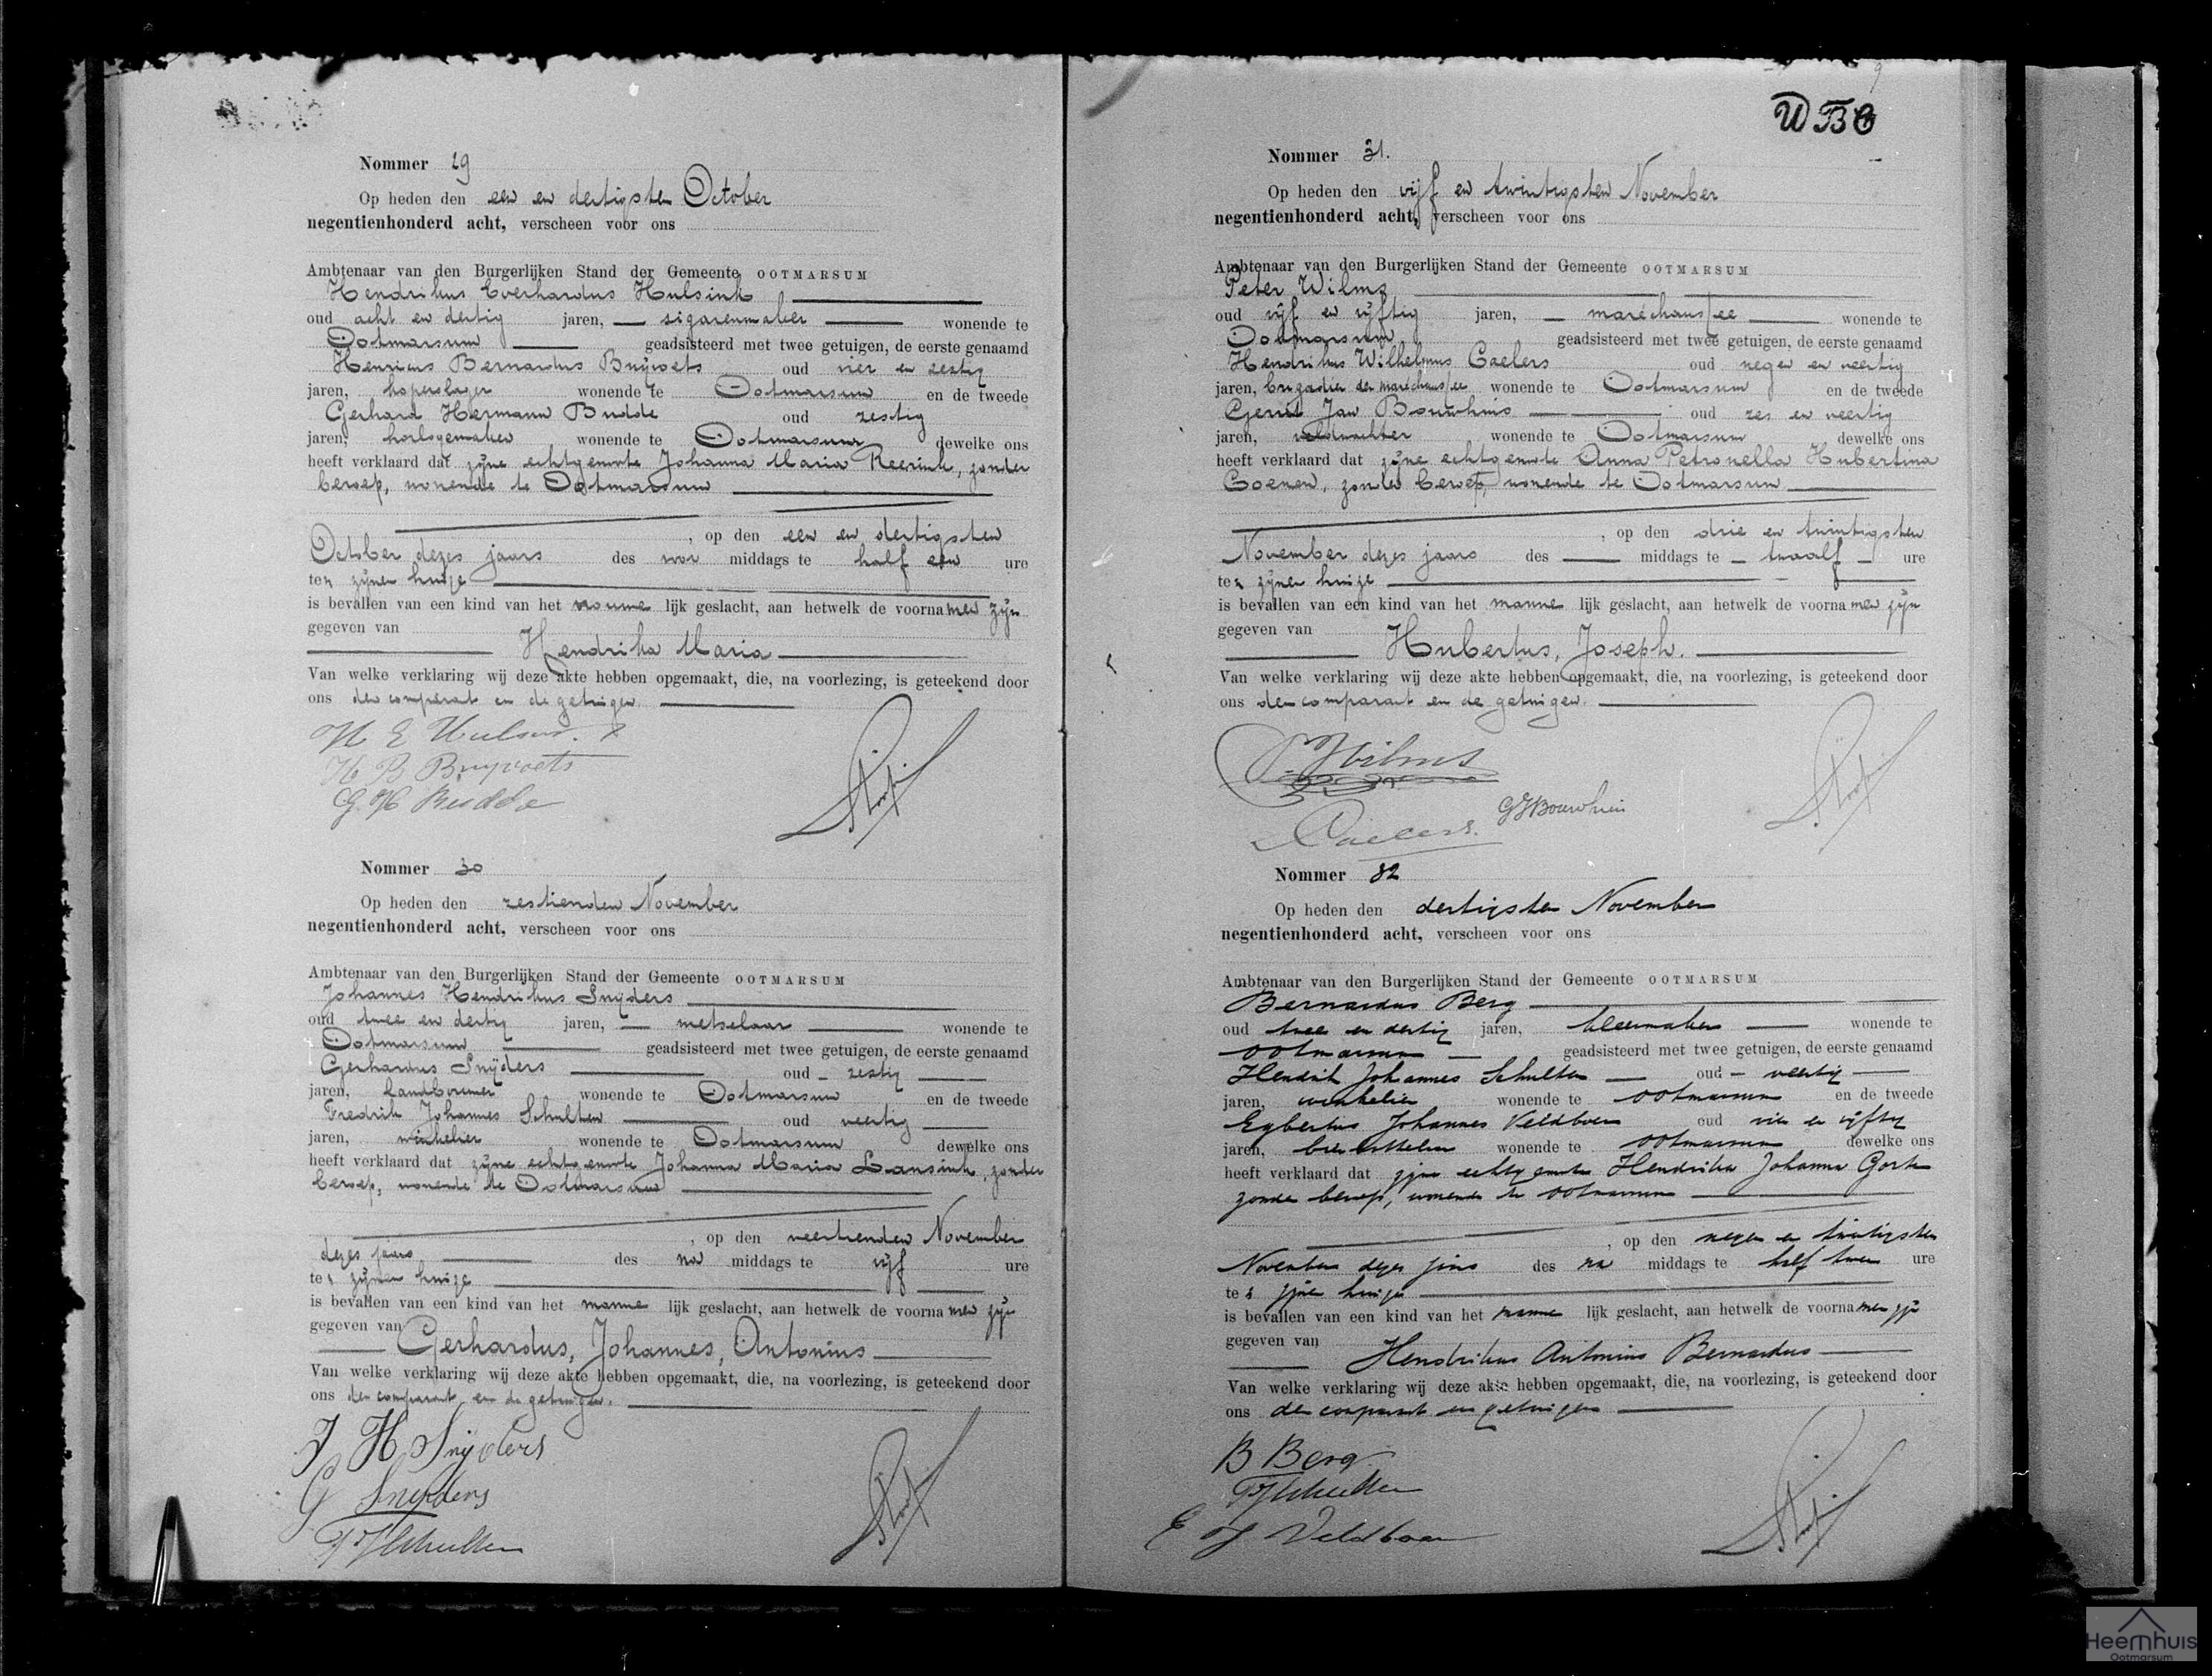 Nommer 29
Op heden den een en dertigsten October
negentienhonderd acht, verscheen voor ons
Ambtenaar van den Burgerlijken Stand der Gemeente OOTMARSUM
Hendrikus Everhardus Hulsink
oud acht en dertig jaren, sigarenmaker wonende te
Ootmarsum geadsisteerd met twee getuigen, de eerste genaamd
Henricus Bernardus Bruyvoets oud vier en zestig
jaren, koperslager wonende te Ootmarsum en de tweede
Gerhard Hermann Budde oud zestig
jaren, horlogemaker wonende te Ootmarsum dewelke ons
heeft verklaard dat zijne echtgenoote Johanna Maria Reerink, zonder
beroep, wonende te Ootmarsum
, op den een en dertigsten
October dezes jaars des voor middags te half een ure
te zijnen huize
is bevallen van een kind van het vrouwe lijk geslacht, aan hetwelk de voorna men zijn
gegeven van
Hendrika Maria
Van welke verklaring wij deze akte hebben opgemaakt, die, na voorlezing, is geteekend door
ons den comparant en de getuigen.
H E Hulsink
H B Bruyvoets
G. H Budde
Nommer 30
Op heden den zestienden November
negentienhonderd acht, verscheen voor ons
Ambtenaar van den Burgerlijken Stand der Gemeente OOTMARSUM
Johannes Hendrikus Snijders
oud twee en dertig jaren, metselaar wonende te
Ootmarsum geadsisteerd met twee getuigen, de eerste genaamd
Gerhardus Snijders oud zestig
jaren, landbouwer wonende te Ootmarsum en de tweede
Fredrik Johannes Schulten oud veertig
jaren, winkelier wonende te Ootmarsum dewelke ons
heeft verklaard dat zijne echtgenoote Johanna Maria Lansink, zonder
beroep, wonende te Ootmarsum
, op den veertienden November
dezes jaars des na middags te vijf ure
te zijnen huize
is bevallen van een kind van het manne lijk geslacht, aan hetwelk de voorna men zijn
gegeven van
Gerhardus, Johannes, Antonius
Van welke verklaring wij deze akte hebben opgemaakt, die, na voorlezing, is geteekend door
ons den comparant en de getuigen.
J H Snijders
G Snijders
F J Schulten
WBC
Nommer 31.
Op heden den vijf en twintigsten November
negentienhonderd acht, verscheen voor ons
Ambtenaar van den Burgerlijken Stand der Gemeente OOTMARSUM
Peter Wilms
oud vijf en vijftig jaren, maréchaussee wonende te
Ootmarsum geadsisteerd met twee getuigen, de eerste genaamd
Hendrikus Wilhelmus Caelers oud negen en veertig
jaren, brigadier der maréchaussee wonende te Ootmarsum en de tweede
Gerrit Jan Bouwhuis oud zes en veertig
jaren, veldwachter wonende te Ootmarsum dewelke ons
heeft verklaard dat zijne echtgenoote Anna Petronella Hubertina
Coenen, zonder beroep, wonende te Ootmarsum
, op den drie en twintigsten
November dezes jaars des middags te twaalf ure
te zijnen huize
is bevallen van een kind van het manne lijk geslacht, aan hetwelk de voorna men zijn
gegeven van
Hubertus, Joseph.
Van welke verklaring wij deze akte hebben opgemaakt, die, na voorlezing, is geteekend door
ons den comparant en de getuigen.
P. Wilms
GJBouwhuis
Caelers.
Nommer 32
Op heden den dertigsten November
negentienhonderd acht, verscheen voor ons
Ambtenaar van den Burgerlijken Stand der Gemeente OOTMARSUM
Bernardus Berg
oud twee en dertig jaren, kleermaker wonende te
Ootmarsum geadsisteerd met twee getuigen, de eerste genaamd
Hendrik Johannes Schulten oud veertig
jaren, winkelier wonende te Ootmarsum en de tweede
Egbertus Johannes Veldboer oud vier en vijftig
jaren, wonende te Ootmarsum dewelke ons
heeft verklaard dat zijne echtgenoote Hendrika Johanna
zonder beroep, wonende te Ootmarsum
, op den negen en twintigsten
November dezes jaars des na middags te half twee ure
te zijnen huize
is bevallen van een kind van het manne lijk geslacht, aan hetwelk de voorna men zijn
gegeven van
Hendrikus Antonius Bernardus
Van welke verklaring wij deze akte hebben opgemaakt, die, na voorlezing, is geteekend door
ons den comparant en getuigen
B Berg
F J Schulten
E J Veldboer
Heemhuis
Ootmarsum